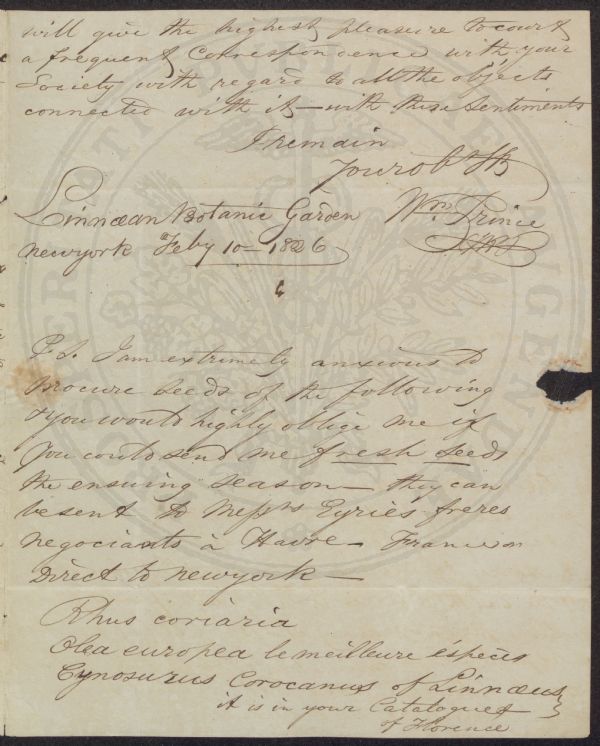 will give the highest pleasure to court
a frequent correspondence with your
Society with regard to all the objects
connected with it — with these Sentiments
I remain
Your obt St
Linnæan Botanic Garden Wm Prince
newyork Feby 10 – 1826
P.S. I am extremely anxious to
procure seeds of the following
& you would highly oblige me if
you could send me fresh seeds
the ensuing season — they can
be sent to Messrs Eyriès frères
negociants à Havre – France or
Direct to newyork —
Rhus coriaria
Olea europea le meilleure éspeces
Cynosurus Corocanus of Linnæus
it is in your Catalogue
of Florence